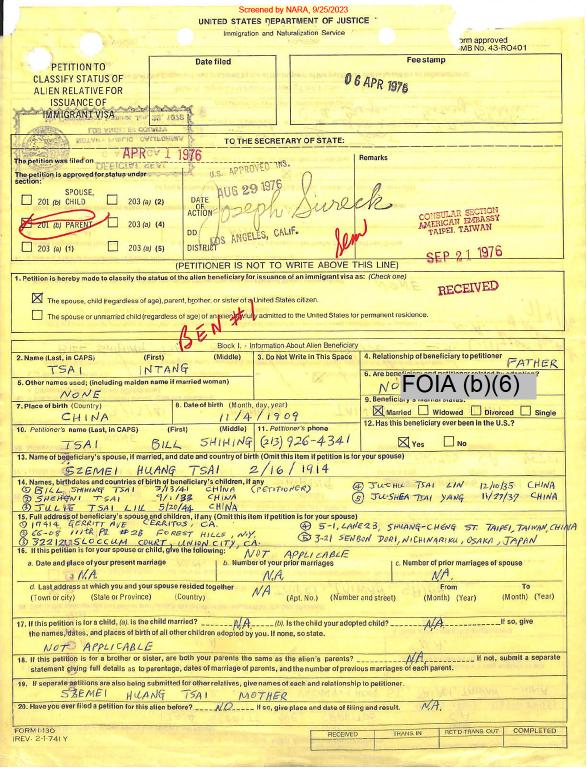 Screened by NARA, 9/25/2023
UNITED STATES DEPARTMENT OF JUSTICE
Immigration and Naturalization Service
orm approved
MB No. 43-RO401
PETITION TO
CLASSIFY STATUS OF
ALIEN RELATIVE FOR
ISSUANCE OF
IMMIGRANT VISA
Date filed
Fee stamp
06 APR 1976
TO THE SECRETARY OF STATE:
The petition was filed on
APR 1 1976
The petition is approved for status under
section:
SPOUSE,
201 (b) CHILD
203 (a) (2)
201 (b) PARENT
203 (a) (4)
203 (a) (1)
203 (a) (5)
Remarks
U.S. APPROVED INS.
AUG 29 1976
DATE
OF
ACTION
Joseph Sureck
DD
DISTRICT
LOS ANGELES, CALIF.
CONSULAR SECTION
AMERICAN EMBASSY
TAIPEI, TAIWAN
SEP 21 1976
RECEIVED
(PETITIONER IS NOT TO WRITE ABOVE THIS LINE)
1. Petition is hereby made to classify the status of the alien beneficiary for issuance of an immigrant visa as: (Check one)
The spouse, child (regardless of age), parent, brother, or sister of a United States citizen.
The spouse or unmarried child (regardless of age) of an alien lawfully admitted to the United States for permanent residence.
BEN #1
Block I. - Information About Alien Beneficiary
2. Name (Last, in CAPS) (First) (Middle)
TSAI INTANG
3. Do Not Write in This Space
4. Relationship of beneficiary to petitioner
FATHER
5. Other names used; (including maiden name if married woman)
NONE
6. Are beneficiary and petitioner related by adoption?
NO
FOIA (b)(6)
7. Place of birth (Country)
CHINA
8. Date of birth (Month, day, year)
11/4/1909
9. Beneficiary's marital status:
Married Widowed Divorced Single
10. Petitioner's name (Last, in CAPS) (First) (Middle)
TSAI BILL SHIHING
11. Petitioner's phone
(213) 926-4341
12. Has this beneficiary ever been in the U.S.?
Yes No
13. Name of beneficiary's spouse, if married, and date and country of birth (Omit this item if petition is for your spouse)
SZEMEI HUANG TSAI 2/16/1914
14. Names, birthdates and countries of birth of beneficiary's children, if any
① BILL SHIHING TSAI 3/13/41 CHINA (PETITIONER)
④ JUCHU TSAI LIN 12/10/35 CHINA
② SHENGNI TSAI 9/1/33 CHINA
⑤ JUSHEA TSAI YANG 11/27/37 CHINA
③ JULIE TSAI LIU 5/20/44 CHINA
15. Full address of beneficiary's spouse and children, if any (Omit this item if petition is for your spouse)
① 17914 GERRITT AVE CERRITOS, CA.
④ 5-1, LANE 23, SHUANG-CHENG ST. TAIPEI, TAIWAN, CHINA
② 66-08 111th PL #2B FOREST HILLS, NY.
⑤ 3-21 SENBON DORI, NICHINARIKU, OSAKA, JAPAN
COURT, UNION CITY, CA.
16. If this petition is for your spouse or child, give the following:
NOT APPLICABLE
a. Date and place of your present marriage
N.A.
b. Number of your prior marriages
N.A.
c. Number of prior marriages of spouse
N.A.
d. Last address at which you and your spouse resided together
N.A.
From To
(Town or city) (State or Province) (Country) (Apt. No.) (Number and street) (Month) (Year) (Month) (Year)
17. If this petition is for a child, (a). Is the child married? N.A. (b). Is the child your adopted child? N.A. If so, give
the names, dates, and places of birth of all other children adopted by you. If none, so state.
NOT APPLICABLE
18. If this petition is for a brother or sister, are both your parents the same as the alien's parents? N.A. If not, submit a separate
statement giving full details as to parentage, dates of marriage of parents, and the number of previous marriages of each parent.
19. If separate petitions are also being submitted for other relatives, give names of each and relationship to petitioner.
SZEMEI HUANG TSAI MOTHER
20. Have you ever filed a petition for this alien before? NO If so, give place and date of filing and result. N.A.
FORM I-130
(REV. 2-1-74) Y
RECEIVED
TRANS. IN
RET'D TRANS. OUT
COMPLETED